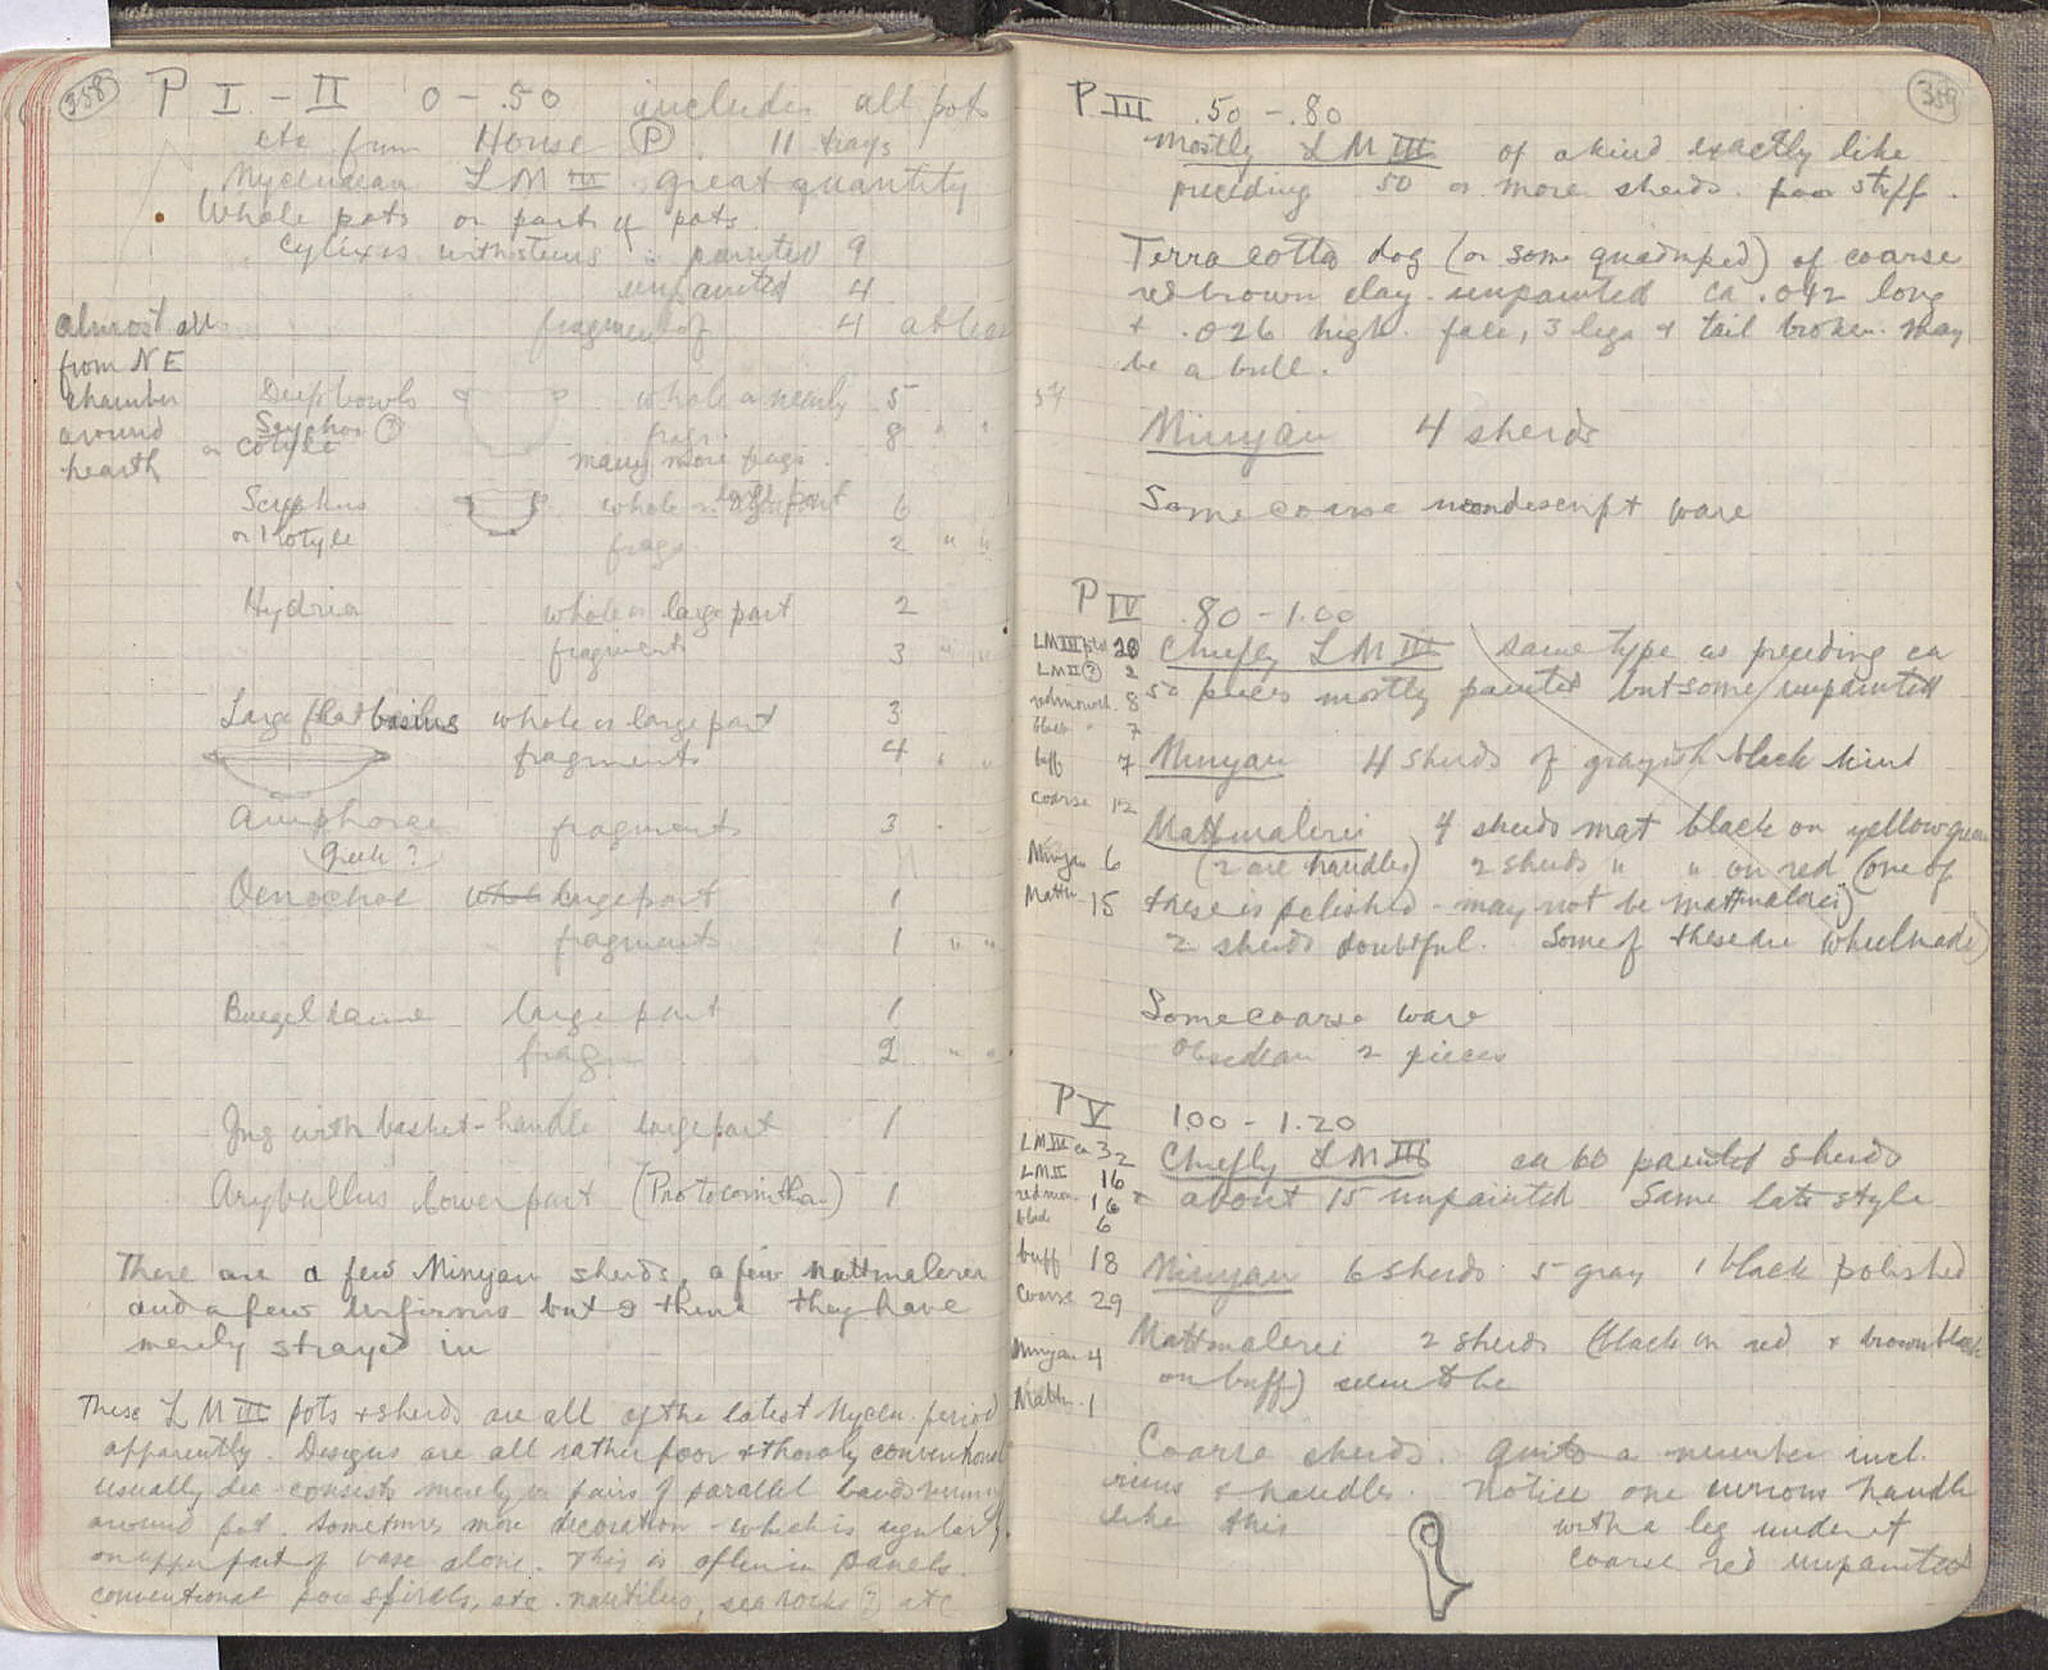 358
P I - II 0 - .50 includes all pots
etc from House P. 11 trays
Mycenaean LM III great quantity
Whole pots or parts of pots.
Cylixes with stems : painted 9
unpainted 4
fragments of 4 at least
almost all
from NE
chamber
around
hearth
Deep bowls whole or nearly 5
Scyphos (?) frags. 8 " "
or cotyle
many more frags.
Scyphus whole or large part 6
or Kotyle frags. 2 " "
Hydria whole or large part 2
fragments 3 " "
Large flat basins whole or large part 3
fragments 4 " "
Amphorae fragments 3 " "
(Greek?)
Oenochoe large part 1
fragments 1 " "
Buegelkanne large part 1
frag 2 " "
Jug with basket-handle large part 1
Aryballus lower part (Protocorinthian) 1
There are a few Minyan sherds, a few mattmalerei
and a few Urfirnis but I think they have
merely strayed in
These LM III pots & sherds are all of the latest Mycen. period
apparently. Designs are all rather poor & thoroly conventional
usually dec. consists merely in pairs of parallel bands running
around pot. Sometimes more decoration - which is regularly
on upper part of vase alone. This is often in panels.
conventional poor spirals, etc. nautilus, sea rocks (?) etc
359
P III .50 - .80
Mostly LM III of a kind exactly like
preceding 50 or more sherds. poor stuff.
Terra cotta dog (or some quadruped) of coarse
red brown clay. unpainted ca .042 long
+ .026 high. face, 3 legs & tail broken. May
be a bull.
Minyan 4 sherds
Some coarse nondescript ware
P IV .80 - 1.00
Chiefly LM III same type as preceding ca
50 pieces mostly painted but some unpainted
Minyan 4 sherds of grayish black kind
Mattmalerei 4 sherds mat black on yellow green
(2 are handles) 2 sherds " " on red (one of
these is polished - may not be mattmalerei)
2 sherds doubtful. Some of these are wheelmade)
Some coarse ware
Obsidian 2 pieces
LM III ptd 20
LM II (?) 2
red monoch. 8
black " 7
buff 7
coarse 12
Minyan 6
Mattm. 15
P V 1.00 - 1.20
Chiefly LM III ca 60 painted sherds
+ about 15 unpainted Same late style
Minyan 6 sherds 5 gray 1 black polished
Mattmalerei 2 sherds (black on red & brown black
on buff) seem to be
Coarse sherds. Quite a number incl.
rims & handles. Notice one curious handle
like this with a leg under it
coarse red unpainted
LM III ca 32
LM II 16
red mon. 16
black 6
buff 18
Coarse 29
Minyan 4
Mattm. 1